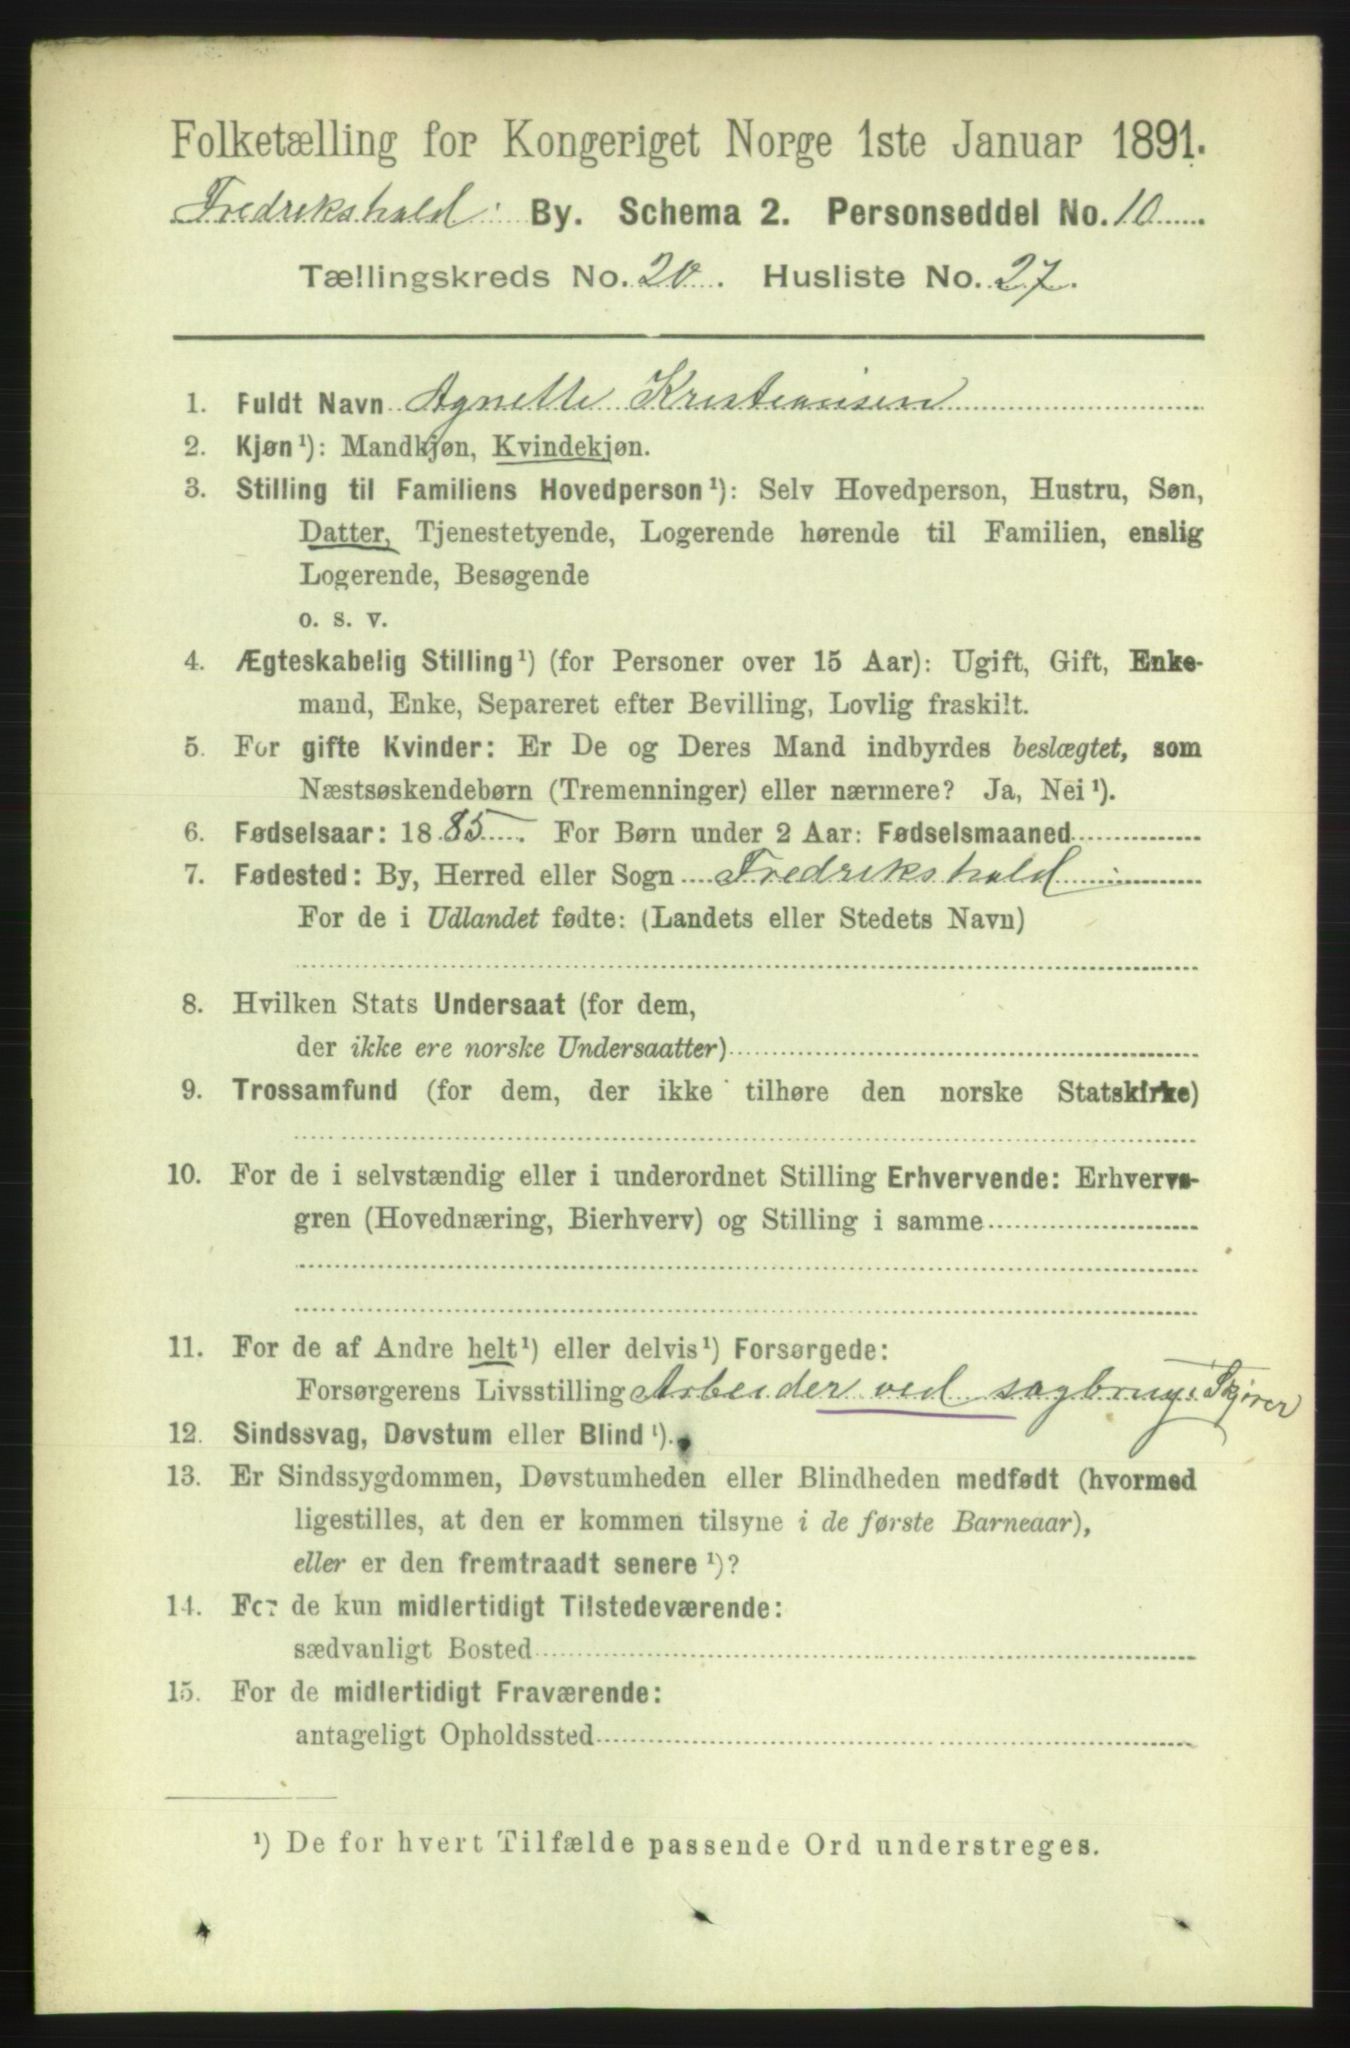 Folketælling for Kongeriget Norge 1ste Januar 1891.
Fredrikshald By. Schema 2. Personseddel No. 10
Tællingskreds No. 20. Husliste No. 27.
1. Fuldt Navn Agnette Kristiansen
2. Kjøn¹): Mandkjøn, Kvindekjøn.
3. Stilling til Familiens Hovedperson¹): Selv Hovedperson, Hustru, Søn,
Datter, Tjenestetyende, Logerende hørende til Familien, enslig
Logerende, Besøgende
o. s. v.
4. Ægteskabelig Stilling¹) (for Personer over 15 Aar): Ugift, Gift, Enke-
mand, Enke, Separeret efter Bevilling, Lovlig fraskilt.
5. For gifte Kvinder: Er De og Deres Mand indbyrdes beslægtet, som
Næstsøskendebørn (Tremenninger) eller nærmere? Ja, Nei¹).
6. Fødselsaar: 1885. For Børn under 2 Aar: Fødselsmaaned
7. Fødested: By, Herred eller Sogn Fredrikshald
For de i Udlandet fødte: (Landets eller Stedets Navn)
8. Hvilken Stats Undersaat (for dem,
der ikke ere norske Undersaatter)
9. Trossamfund (for dem, der ikke tilhøre den norske Statskirke)
10. For de i selvstændig eller i underordnet Stilling Erhvervende: Erhvervs-
gren (Hovednæring, Bierhverv) og Stilling i samme
11. For de af Andre helt¹) eller delvis¹) Forsørgede:
Forsørgerens Livsstilling Arbeider ved sagbrug.
12. Sindssvag, Døvstum eller Blind¹).
13. Er Sindssygdommen, Døvstumheden eller Blindheden medfødt (hvormed
ligestilles, at den er kommen tilsyne i de første Barneaar),
eller er den fremtraadt senere¹)?
14. For de kun midlertidigt Tilstedeværende:
sædvanligt Bosted
15. For de midlertidigt Fraværende:
antageligt Opholdssted
¹) De for hvert Tilfælde passende Ord understreges.